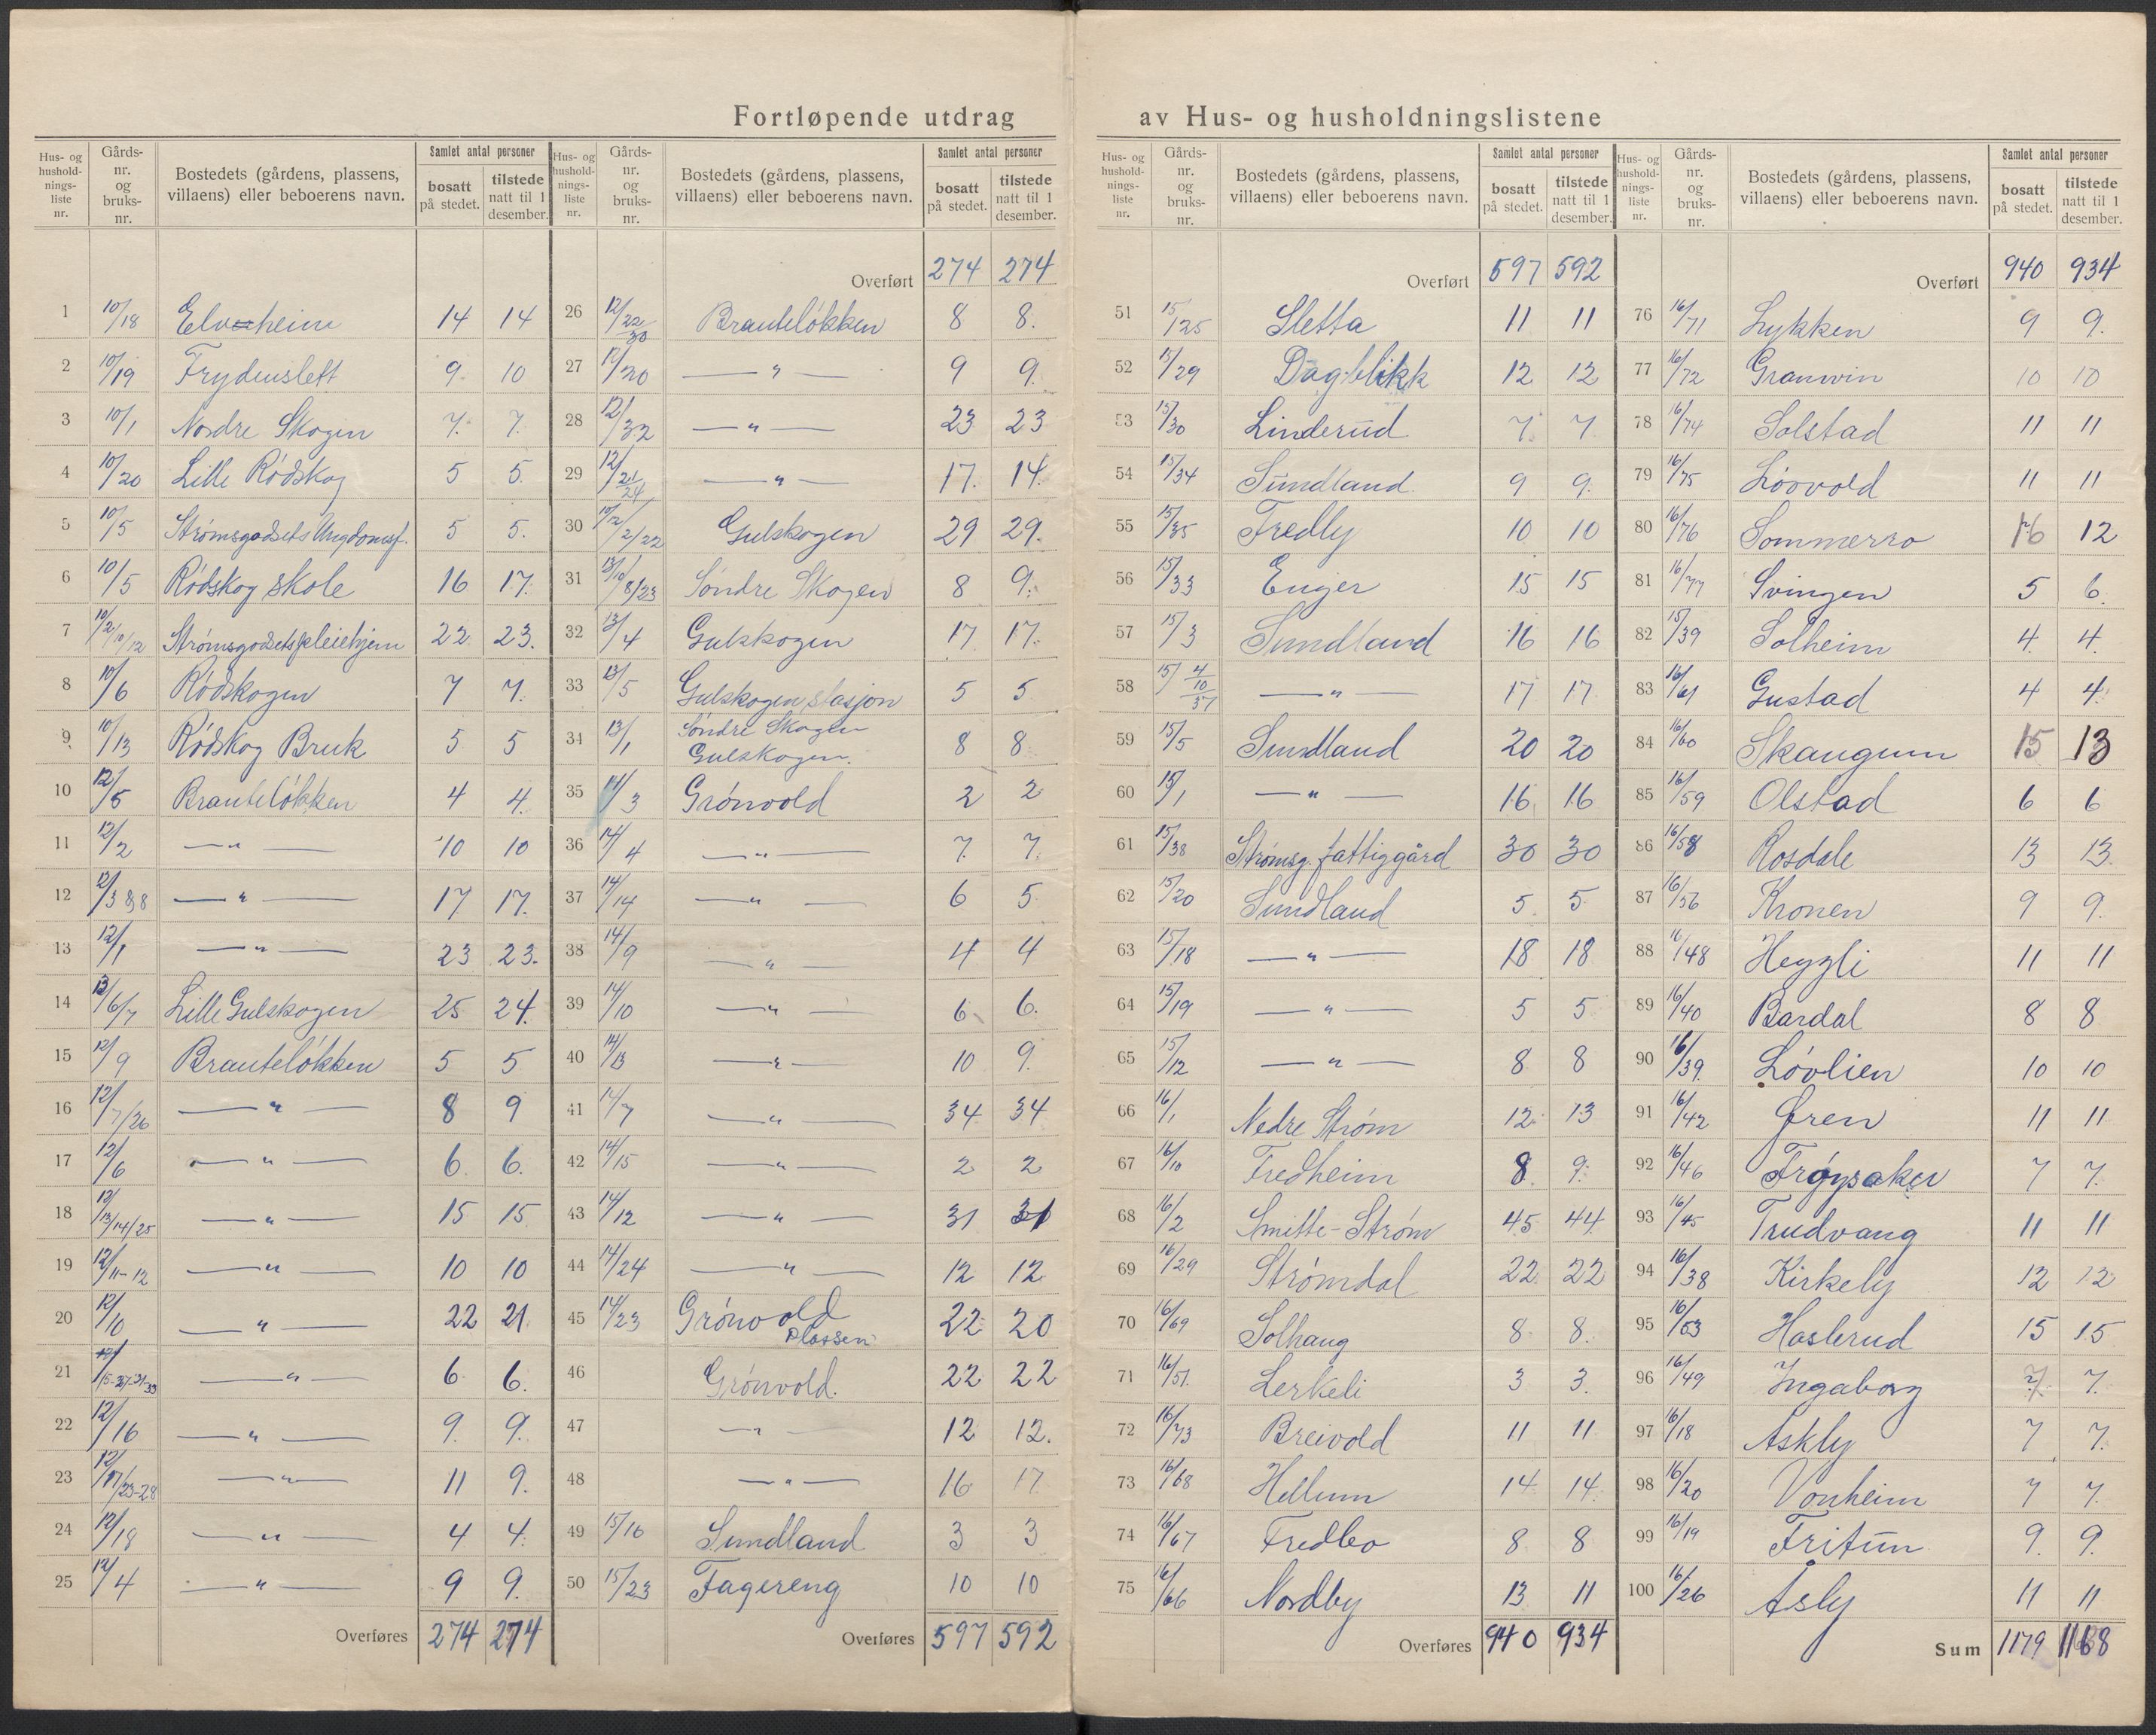 Fortløpende utdrag av Hus- og husholdningslistene
Hus- og husholdnings-liste nr. | Gårds-nr. og bruks-nr. | Bostedets (gårdens, plassens, villaens) eller beboerens navn. | Samlet antal personer | bosatt på stedet. | tilstede natt til 1 desember.
1 10/18 Elvheim 14 14
2 10/19 Frydenslett 9 10
3 10/1 Nordre Skogen 7 7
4 10/20 Lille Rødskog 5 5
5 10/5 Strømsgodsets Ungdomsf. 5 5
6 10/5 Rødskog skole 16 17
7 10/2/10/12 Strømsgodsets pleiehjem 22 23
8 10/6 Rødskogen 7 7
9 10/13 Rødskog Bruk 5 5
10 12/5 Brauteløkken 4 4
11 12/2 —"— 10 10
12 12/3 & 8 —"— 17 17
13 12/1 —"— 23 23
14 13/6/7 Lille Gulskogen 25 24
15 12/9 Brauteløkken 5 5
16 12/7/26 —"— 8 9
17 12/6 —"— 6 6
18 12/13/14/25 —"— 15 15
19 12/11-12 —"— 10 10
20 12/10 —"— 22 21
21 —"— 6 6
22 12/16 —"— 9 9
23 12/17/23-28 —"— 11 9
24 12/18 —"— 4 4
25 12/4 —"— 9 9
Overføres 274 274
Hus- og husholdnings-liste nr. | Gårds-nr. og bruks-nr. | Bostedets (gårdens, plassens, villaens) eller beboerens navn. | Samlet antal personer | bosatt på stedet. | tilstede natt til 1 desember.
Overført 274 274
26 12/22/30 Brauteløkken 8 8
27 12/20 —"— 9 9
28 12/32 —"— 23 23
29 12/21/24 —"— 17 14
30 Gulskogen 29 29
31 Søndre Skogen 8 9
32 13/4 Gulskogen 17 17
33 13/5 Gulskogen stasjon 5 5
34 13/1 Søndre Skogen Gulskogen 8 8
35 14/3 Grønvold 2 2
36 14/4 —"— 7 7
37 14/14 —"— 6 5
38 14/9 —"— 4 4
39 14/10 —"— 6 6
40 14/13 —"— 10 9
41 14/7 —"— 34 34
42 14/15 —"— 2 2
43 14/12 —"— 31 31
44 14/24 —"— 12 12
45 14/23 Grønvold plassen 22 20
46 Grønvold 22 22
47 —"— 12 12
48 —"— 16 17
49 15/16 Sundland 3 3
50 15/23 Fagereng 10 10
Overføres 597 592
Hus- og husholdnings-liste nr. | Gårds-nr. og bruks-nr. | Bostedets (gårdens, plassens, villaens) eller beboerens navn. | Samlet antal personer | bosatt på stedet. | tilstede natt til 1 desember.
Overført 597 592
51 15/25 Sletta 11 11
52 15/29 Dagblikk 12 12
53 15/30 Linderud 7 7
54 15/34 Sundland 9 9
55 15/35 Fredly 10 10
56 15/33 Enger 15 15
57 15/3 Sundland 16 16
58 15/4/10/37 —"— 17 17
59 15/5 Sundland 20 20
60 15/1 —"— 16 16
61 15/38 Strømsg. fattiggård 30 30
62 15/20 Sundland 5 5
63 15/18 —"— 18 18
64 15/19 —"— 5 5
65 15/12 —"— 8 8
66 16/1 Nedre Strøm 12 13
67 16/10 Fredheim 8 9
68 16/2 Smitte-Strøm 45 44
69 16/29 Strømdal 22 22
70 16/69 Solhaug 8 8
71 16/51 Lerkeli 3 3
72 16/73 Breivold 11 11
73 16/68 Hellum 14 14
74 16/67 Fredbo 8 8
75 16/66 Nordby 13 11
Overføres 940 934
Hus- og husholdnings-liste nr. | Gårds-nr. og bruks-nr. | Bostedets (gårdens, plassens, villaens) eller beboerens navn. | Samlet antal personer | bosatt på stedet. | tilstede natt til 1 desember.
Overført 940 934
76 16/71 Lykken 9 9
77 16/72 Granvin 10 10
78 16/74 Solstad 11 11
79 16/75 Løvvold 11 11
80 16/76 Sommerro 16 12
81 16/77 Svingen 5 6
82 15/39 Solheim 4 4
83 16/61 Gustad 4 4
84 16/60 Skaugum 15 13
85 16/59 Olstad 6 6
86 16/58 Rosdale 13 13
87 16/56 Kronen 9 9
88 16/48 Heggli 11 11
89 16/40 Bardal 8 8
90 16/39 Løvlien 10 10
91 16/42 Øren 11 11
92 16/46 Frøysaker 7 7
93 16/45 Trudvang 11 11
94 16/38 Kirkely 12 12
95 16/63 Haslerud 15 15
96 16/49 Ingaborg 7 7
97 16/18 Askly 7 7
98 16/20 Vonheim 7 7
99 16/19 Fritun 9 9
100 16/26 Åsly 11 11
Sum 1179 1168